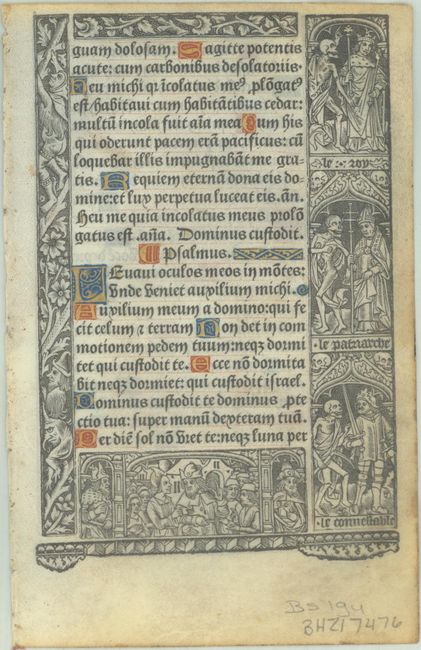 guam dolosam. Sagitte potentis
acute: cum carbonibus desolatoriis.
Heu michi qr̄ icolatus me⁹ plōgat⁹
est habitaui cum habitātibus cedar:
multū incola fuit aīa mea Cum his
qui oderunt pacem erā pacificus: cū
loquebar illis impugnabāt me gra-
tis. Requiem eternā dona eis do-
mine: et lux perpetua luceat eis. añ.
Heu me quia incolatus meus prolō
gatus est. aña. Dominus custodit.
Psalmus.
Leuaui oculos meos in mōtes:
Vnde veniet auxilium michi.
Auxilium meum a domino: qui fe
cit celum ⁊ terram Non det in com
motionem pedem tuum: neqꝫ dormi
tet qui custodit te. Ecce nō dormita
bit neqꝫ dormiet: qui custodit israel.
Dominus custodit te dominus ꝓte
ctio tua: super manū dexteram tuā.
Per diē sol nō vret te: neqꝫ luna per
le roy
le patriarche
le connestable
BS 194
BHZ17476